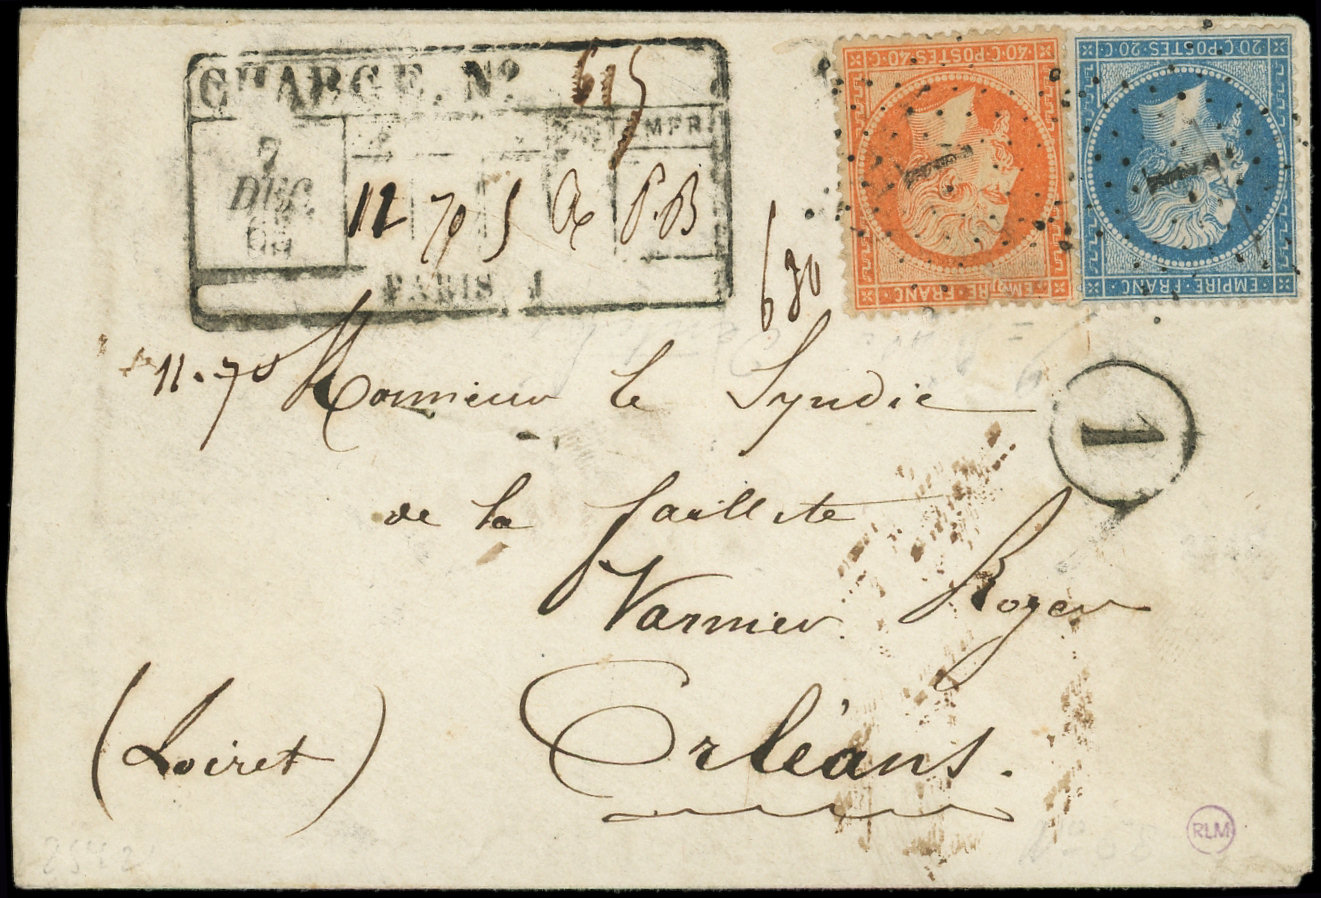 CHARGE. Nº 615
7
DEC.
11 70 5 P.B
PARIS 1
40 C·POSTES·40 C
EMPIRE·FRANC
20 C·POSTES·20 C
EMPIRE·FRANC
630
1
11.70 Monsieur le Syndic
de la faillite
Varnier Royer
(Loiret) Orléans.
RLM